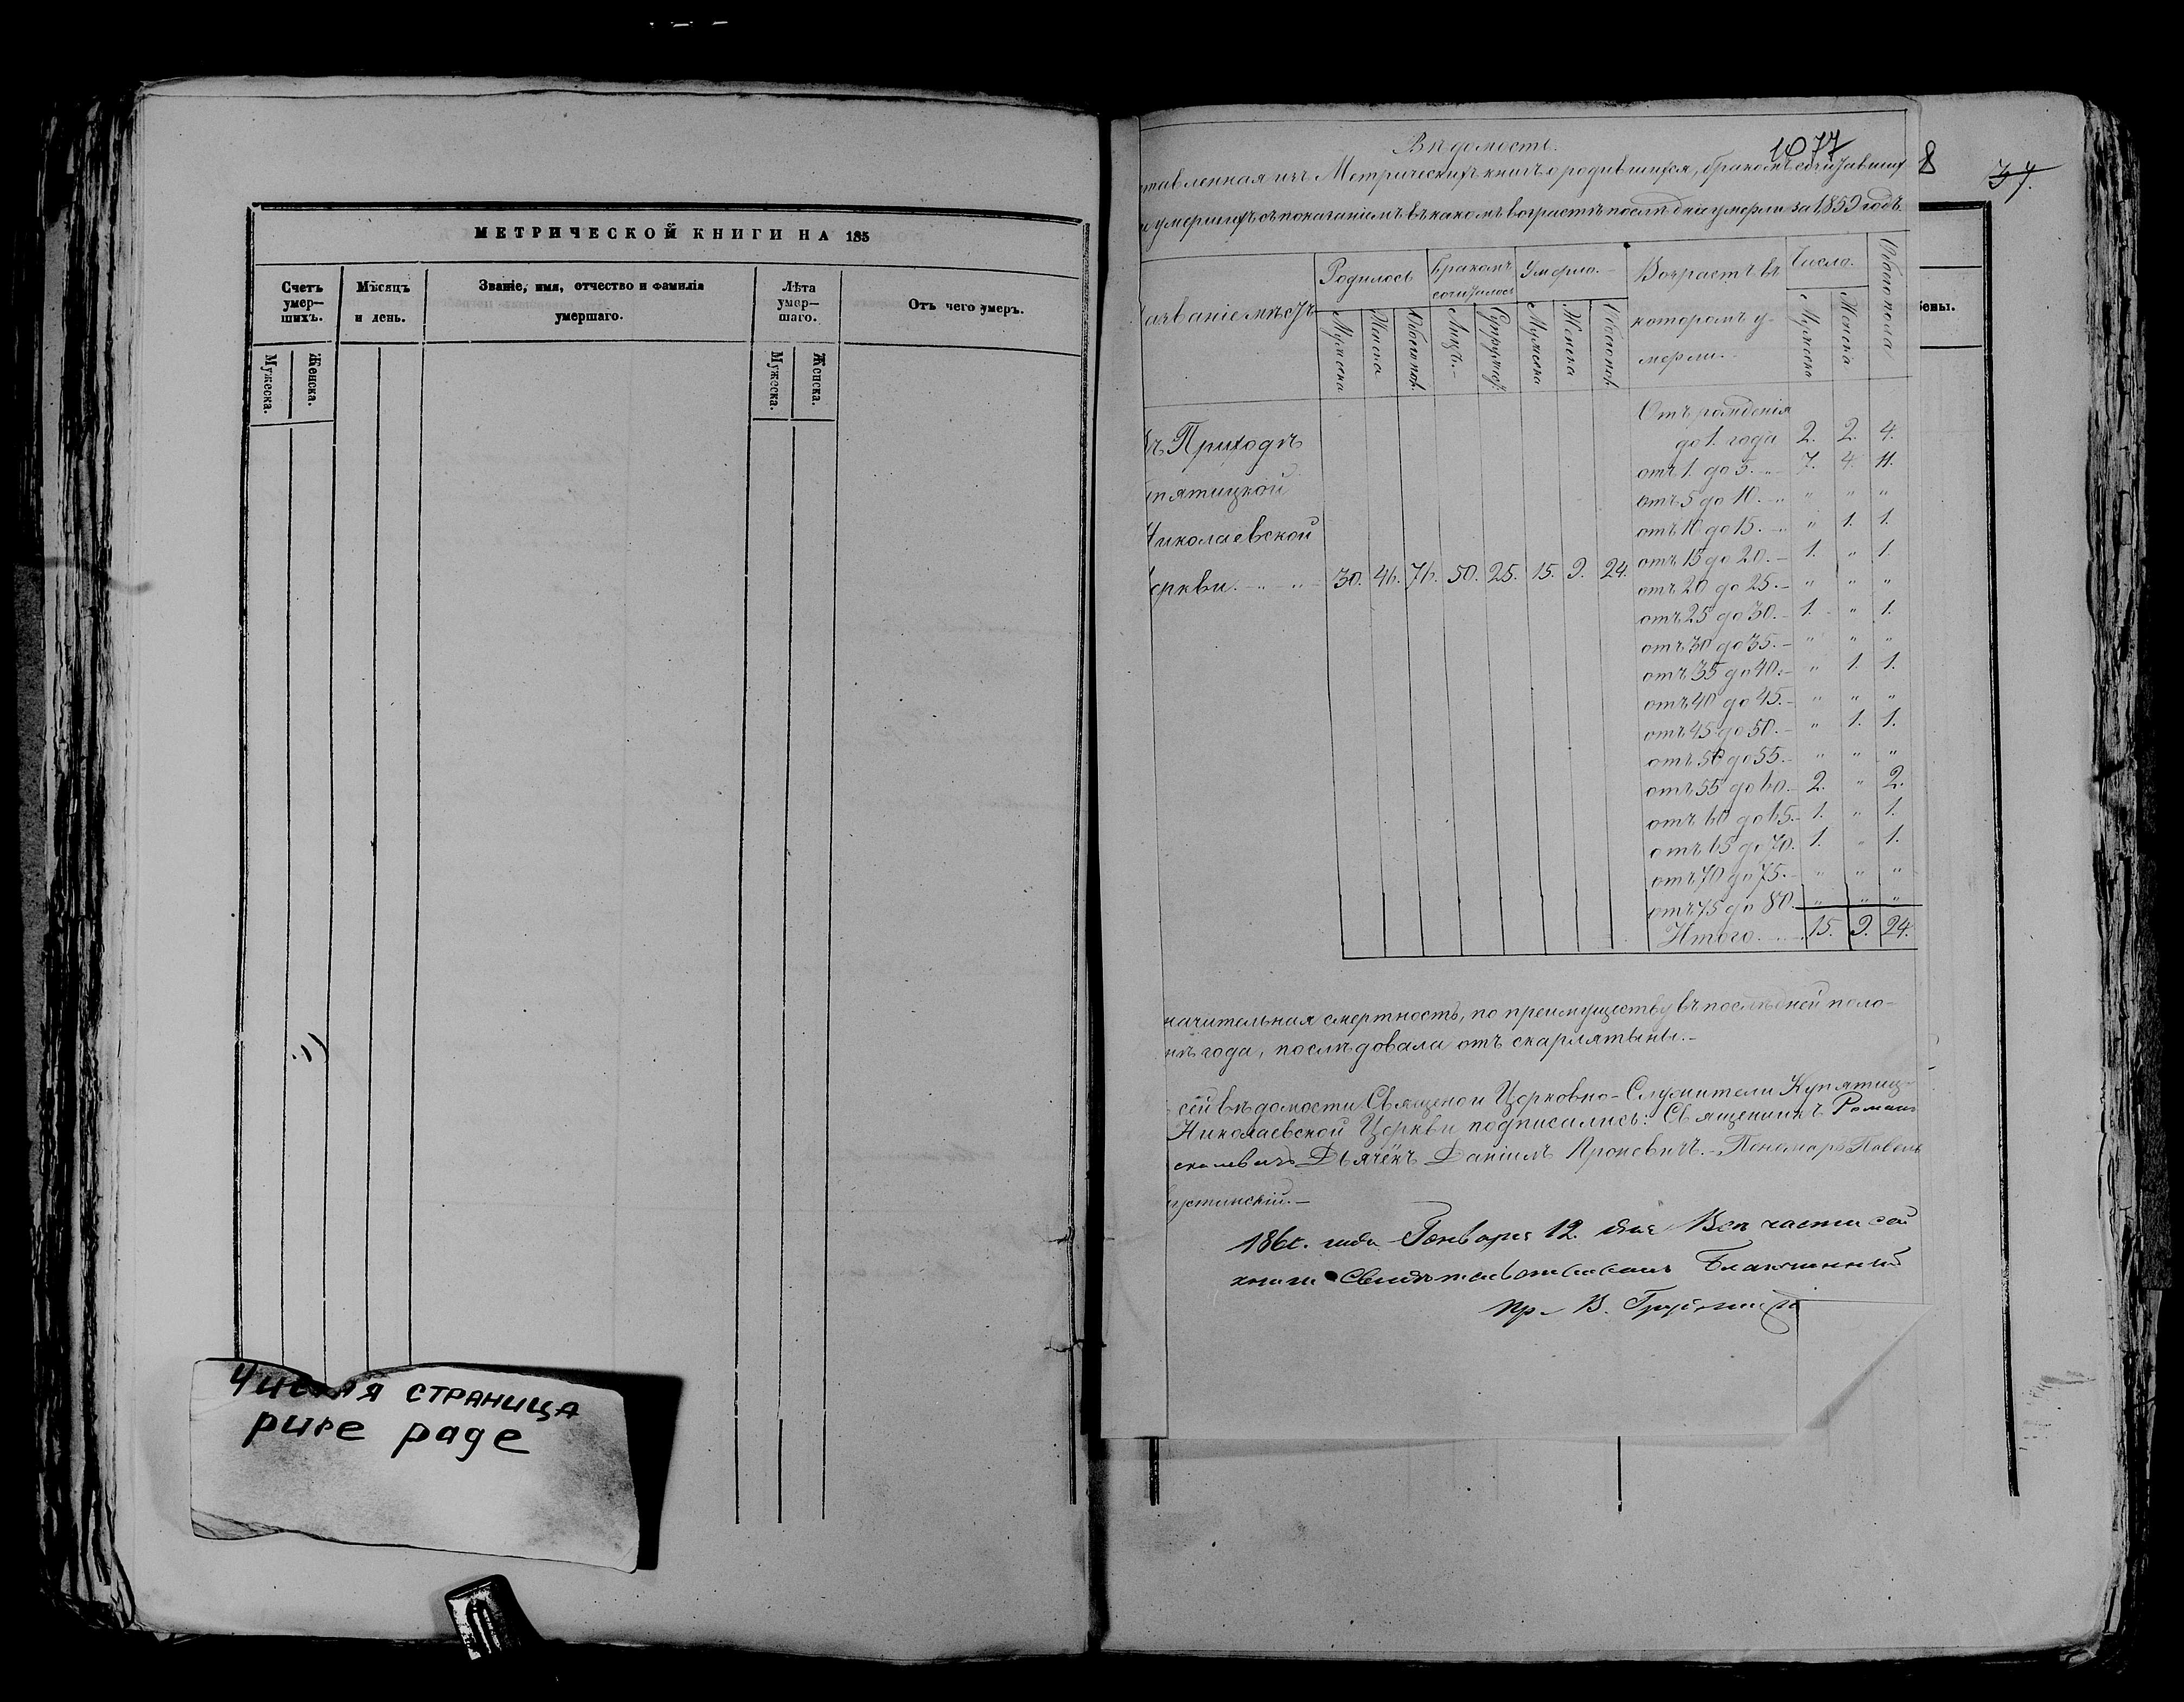 МЕТРИЧЕСКОЙ КНИГИ НА 185
Счетъ умер— шихъ.
Мужеска.
Женска.
Мѣсяцъ и день.
Званіе, имя, отчество и фамилія умершаго.
Лѣта умер— шаго.
Мужеска.
Женска.
Отъ чего умеръ.
Чистая страница
pure page
1077
8
37.
бены.
Вѣдомость.
тавленная изъ Метрическихъ книгъ о родившихся, бракомъ сочетавших
и умершихъ съ показаніемъ въ какомъ возрастѣ послѣдніе умерли за 1859 годъ.
азваніе мѣстъ
Родилось
Мужеска
Женска
Обоего пол.
Бракомъ сочеталось
Лицъ.
Супружес.
Умерло.
Мужеска
Женска
Обоего пол.
Возрастъ въ которомъ умерли.
Число.
Мужеска
Женска
Обоего пола
ъ Приходѣ
пятицкой
Николаевской
еркви. 30. 46. 76. 50. 25. 15. 9. 24.
Отъ рожденія
до 1. года 2. 2. 4.
отъ 1. до 5. 7. 4. 11.
отъ 5 до 10. " " "
отъ 10 до 15. " 1. 1.
отъ 15 до 20. 1. " 1.
отъ 20 до 25. " " "
отъ 25 до 30. 1. " 1.
отъ 30 до 35. " " "
отъ 35 до 40. " 1. 1.
отъ 40 до 45. " " "
отъ 45 до 50. " 1. 1.
отъ 50 до 55. " " "
отъ 55 до 60. 2. " 2.
отъ 60 до 65. 1. " 1.
отъ 65 до 70. 1. " 1.
отъ 70 до 75. " " "
отъ 75 до 80. " " "
Итого 15. 9. 24.
начительная смертность, по преимуществу въ послѣдней поло-
нѣ года, послѣдовала отъ скарлятыны.
сей вѣдомости Священо и Церковно-Служители Купятиц
Николаевской Церкви подписались: Священникъ Роман
Дьячекъ Даніилъ Пономарь Павелъ
устинскій.
1860. года Января 12. дня Всѣ части сей
книги свидѣтельствовалъ Благочинный
пр. В.